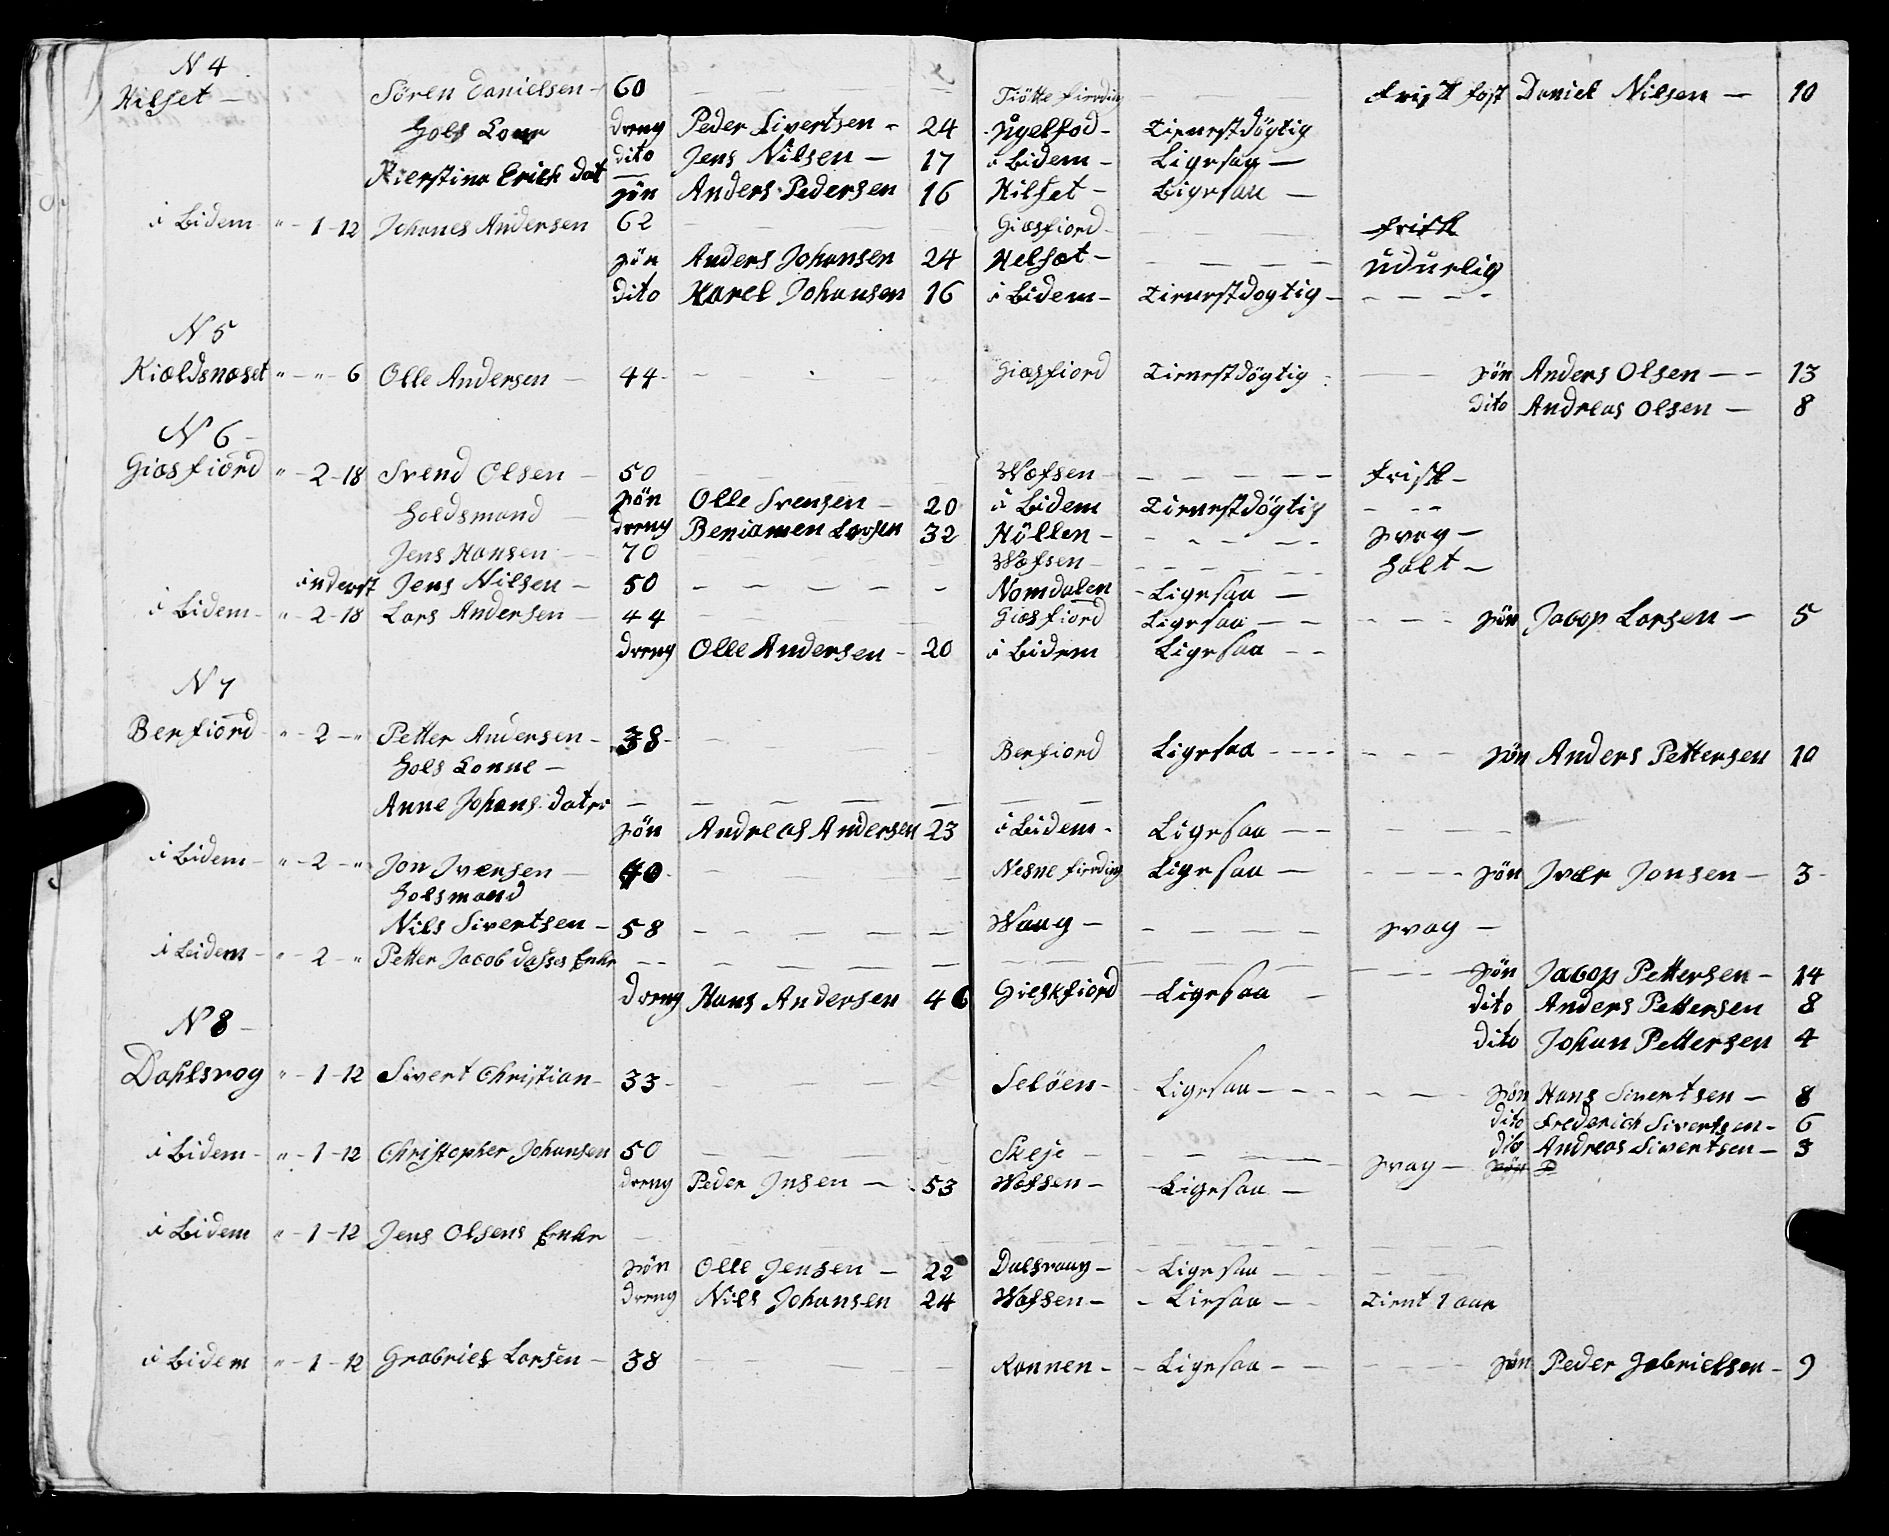 N 4
Hilset — Sören Danielsen — 60 — — — Tiötte fierding — — — Frisk fost Daniel Nilsen — 10
Hols Kone dreng Peder Sivertsen - 24 Ugelsod - Tienestdögtig
dito Jens Nilsen — 17 i Bidem — Ligesaa —
Kierstina Erich Dat — sön Anders Pedersen 16 Hilset - Ligesaa —
i Bidem " - 1 - 12 Johanes Andersen 62 — — — Giæsfiord - — — — Frisk
sön Anders Johansen 24 Helset - — — — — Udurlig
dito Karel Johansen 16 i Bidem - Tienestdogtig - - — — -
N 5
Kiældsnæset " — " - 6 Olle Andersen — 44 - - — Giæsfiord Tienestdögtig — — sön Anders Olsen — — 13
dito Andreas Olsen — 8
N 6 —
Giæsfiord " - 2 - 18 Svend Olsen — 50 — Wæfsen - — — — — Frisk -
sön Olle Svensen — 20 i Bidem Tienestdögtig - — -
Holdsmand — dreng Beniamen Larsen 32 Höllen - - - - — - svag —
Jens Hansen — 70 — Wæfsen - — — — — halt —
inderst Jens Nilsen — 50 — — — — - Nomdalen - Ligesaa —
i Bidem - " - 2 - 18 Lars Andersen — 44 — — — Giæsfiord Ligesaa — - - — - - sön Jacop Larsen — 5
dreng Olle Andersen - 20 i Bidem Ligesaa - -
N 7
Berfiord - " - 2 - " Petter Andersen - 38 - — — — Berfiord Ligesaa - - - - - — - - sön Anders Pettersen 10
Hols Konne —
Anne Johans Dater — — — — — — —
sön Andreas Andersen 23 i Bidem - Ligesaa — — — — —
i Bidem - " - 2 - " Jon Iversen — 40 - — — — Nesne fierding Ligesaa — - - - - sön Ivær Jonsen — 3 -
Holsmand
Nils Sivertsen - 58 — — — — — Waag — — — — — svag —
i Leidem - " - 2 - " Petter Jacob Dasses Enke — — — — — — — — sön Jacop Pettersen - 14
dreng Hans Andersen 46 Gieskfiord - Ligesaa — dito Anders Pettersen 8
N 8 — dito Johan Pettersen 4
Dahlsvog " - 1 - 12 Sivert Christian - 33 - — — — Selöen - - Ligesaa — - - - — - sön Hans Sivertsen — 8
dito Frederich Sivertsen - 6
i Bidem - " - 1 - 12 Christopher Johansen 50 — — — — Skeje — — — — svag — dito Andreas Sivertsen — 3
dreng Peder Jnsen — 53 Wæfsen - - Ligesaa — sön P
i Bidem " - 1 - 12 Jens Olsens Enke — — — — — —
sön Olle Jensen — 22 Dalsvaag - - Ligesaa — - — —
dreng Nils Johansen 24 Wæfsen - - Liesaa — - Tient 1 aar
i Bidem " - 1 - 12 Grabriel Larsen — 38 — — — — Rannen - - Ligesaa - - - - — — sön Peder Gabrielsen - 9